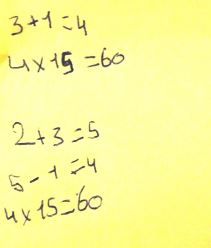 3+1=4
4×15=60
2+3=5
5-1=4
4×15=60